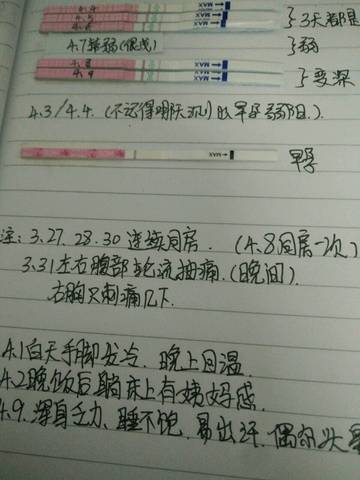 4.4
4.5
4.6
MAX
}3天都是
4.7转弱(很浅)
}弱
4.8
4.9
MAX
MAX
}变深
4.3/4.4.(不记得哪天测)的早孕弱阳.)
MAX
早孕
注: 3.27. 28. 30 连续同房. (4.8同房一次)
3.31左右腹部轮流抽痛.(晚间).
右胸只刺痛几下.
4.1白天手脚发冷. 晚上回温.
4.2晚饭后躺床上有姨妈感.
4.9.浑身乏力、睡不饱. 易出汗. 偶尔头晕